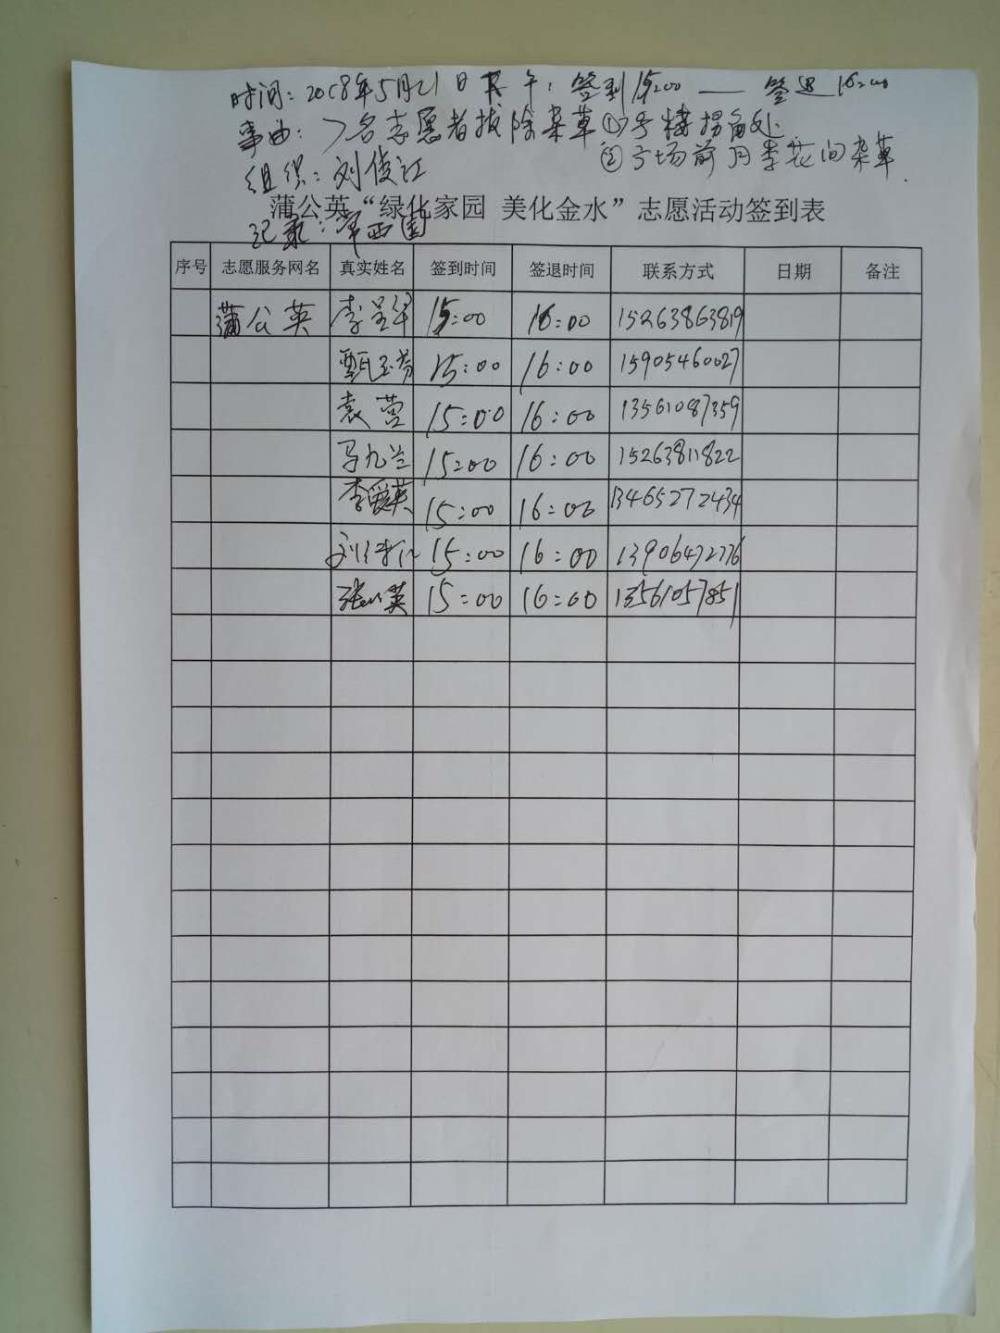 时间：2018年5月21日下午，签到15:00 — 签退16:00
事由：7名志愿者拔除杂草①号楼拐角处
②广场前月季花间杂草.
组织：刘俊江
蒲公英“绿化家园 美化金水”志愿活动签到表
记录：
序号 志愿服务网名 真实姓名 签到时间 签退时间 联系方式 日期 备注
蒲公英 李呈华 15:00 16:00 15263863819
甄玉芳 15:00 16:00 15905460027
袁营 15:00 16:00 13561087359
马九兰 15:00 16:00 15263811822
李爱英 15:00 16:00 13465272434
刘俊江 15:00 16:00 13906472776
张以英 15:00 16:00 13561057851